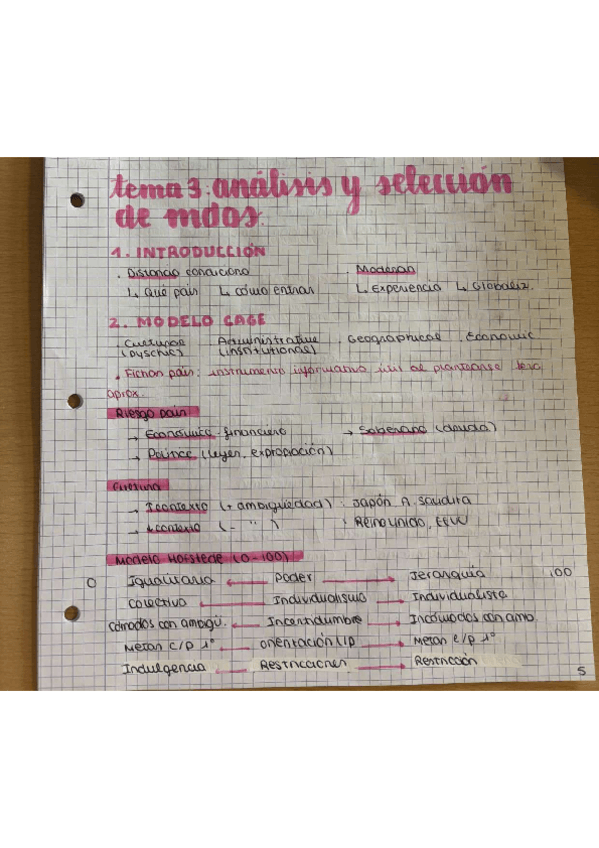 tema 3: análisis y selección
de mdos.
1. INTRODUCCIÓN
. Distancia condiciona . Moderan
↳ Qué país ↳ cómo entrar ↳ Experiencia ↳ Globaliz.
2. MODELO CAGE
. Cultural Administrative . Geographical . Economic
(pyschic) (institutional)
. Fichas país: instrumento informativo útil al plantearse 1era
aprox.
Riesgo país
→ Económico-financiero → Soberano (deuda)
→ Político (leyes, expropiación)
Cultura
→ ↑contexto (+ ambigüedad) : Japón A. Saudita
→ ↓contexto (- " ) : Reino Unido, EEUU
Modelo Hofstede (0-100)
0 Igualitaria ← Poder → Jerarquía 100
Colectivo ← Individualismo → Individualista
Cómodos con ambigü. ← Incertidumbre → Incómodos con amb.
Metas c/p 1º ← Orientación l/p → Metas l/p 1º
Indulgencia ← Restricciones → Restricción
5